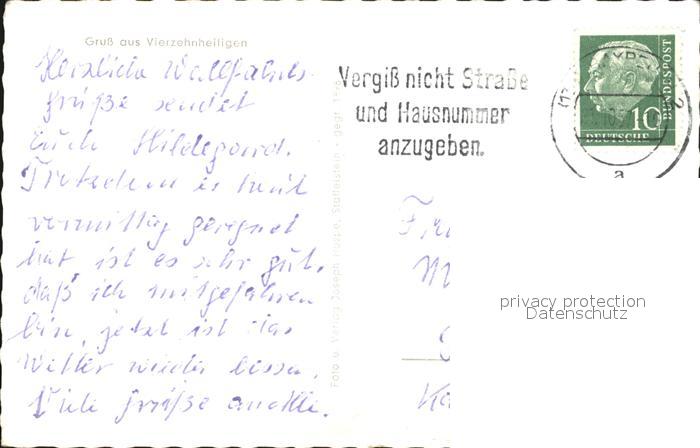 Gruß aus Vierzehnheiligen
Herzliche Wallfahrts-
grüße sendet
Euch Hildegard.
Trotzdem es heut
vormittag geregnet
hat, ist es sehr gut,
daß ich mitgefahren
bin, jetzt ist das
Wetter wieder besser.
Viele Grüße an alle.
Foto u. Verlag Joseph
Vergiß nicht Straße
und Hausnummer
anzugeben.
DEUTSCHE
BUNDESPOST
10
a
2
privacy protection
Datenschutz